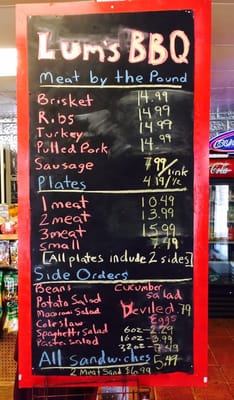 Lum's BBQ
Meat by the Pound
Brisket 14.99
Ribs 14.99
Turkey 14.99
Pulled Pork 14.99
Sausage 7.99/link
Plates 4.19/
1 meat 10.49
2 meat 13.99
3 meat 15.99
small 7.49
[All plates include 2 sides]
Side Orders
Beans Cucumber
Potato Salad salad
Macaroni Salad Deviled .79
Coleslaw Eggs
Spaghetti Salad 6oz - 2.29
Pasta Salad 16oz - 3.99
32oz - 7.49
All Sandwiches 5.49
2 Meat Sand $6.99
Coca-Cola